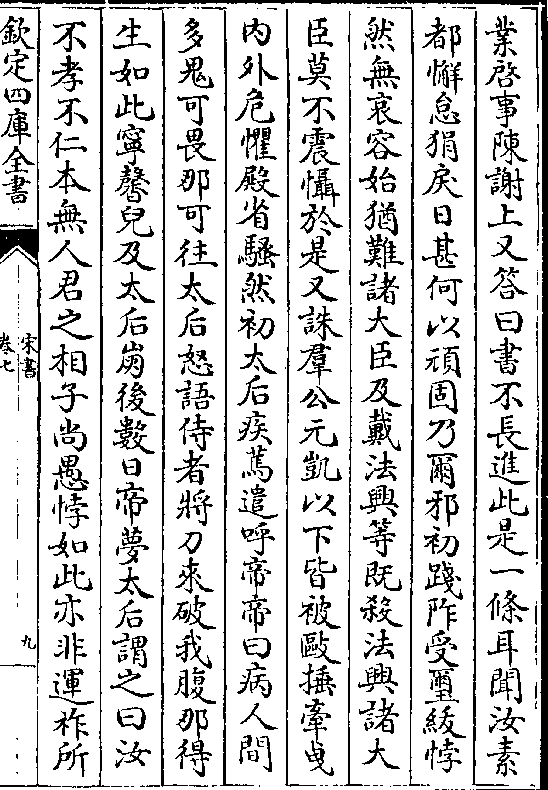 業啓事陳謝上又答曰書不長進此是一條耳聞汝素
都懈怠狷戾日甚何以頑固乃爾邪初踐阼受璽紱悖
然無哀容始猶難諸大臣及戴法興等既殺法興諸大
臣莫不震懾於是又誅羣公元凱以下皆被毆捶牽曳
内外危懼殿省騷然初太后疾篤遣呼帝帝曰病人間
多鬼可畏那可往太后怒語侍者將刀來破我腹那得
生如此寧馨兒及太后崩後數日帝夢太后謂之曰汝
不孝不仁本無人君之相子尚愚悖如此亦非運祚所
欽定四庫全書
宋書
卷七
九